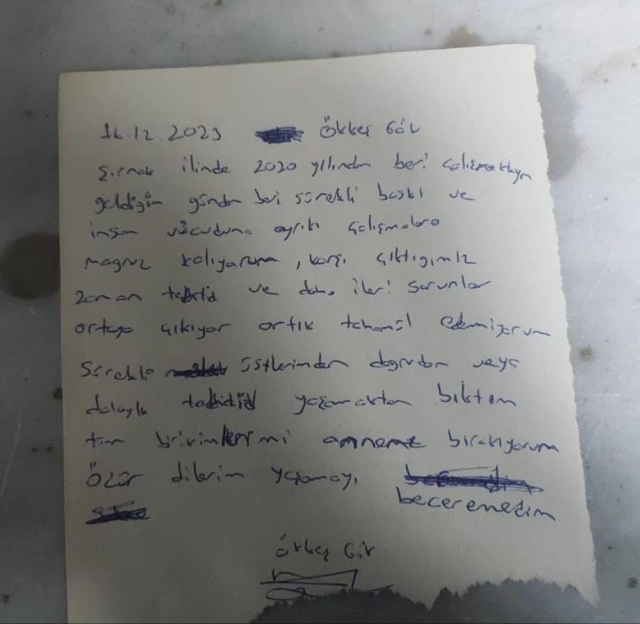 16.12.2023 Ökkeş Gök
Şırnak ilinde 2020 yılından beri çalışmaktayım
geldiğim günden beri sürekli baskı ve
insan vücuduna aykırı çalışmalara
magruz kalıyorum, karşı çıktığımız
zaman tehdid ve daha ileri sorunlar
ortaya çıkıyor artık tahamül edemiyorum
Sürekli üstlerimden doğrudan veya
dolaylı tehdid yaşamaktan bıktım
tüm birikimlerimi anneme bırakıyorum
Özür dilerim yaşamayı
beceremedim
Ökkeş